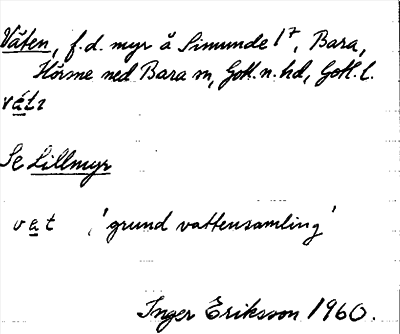 Väten, f.d. myr å Simunde 1⁷, Bara,
Hörsne med Bara sn, Gotl. n. hd, Gotl. l.
vátı
Se Lillmyr
vat 'grund vattensamling'
Inger Eriksson 1960.